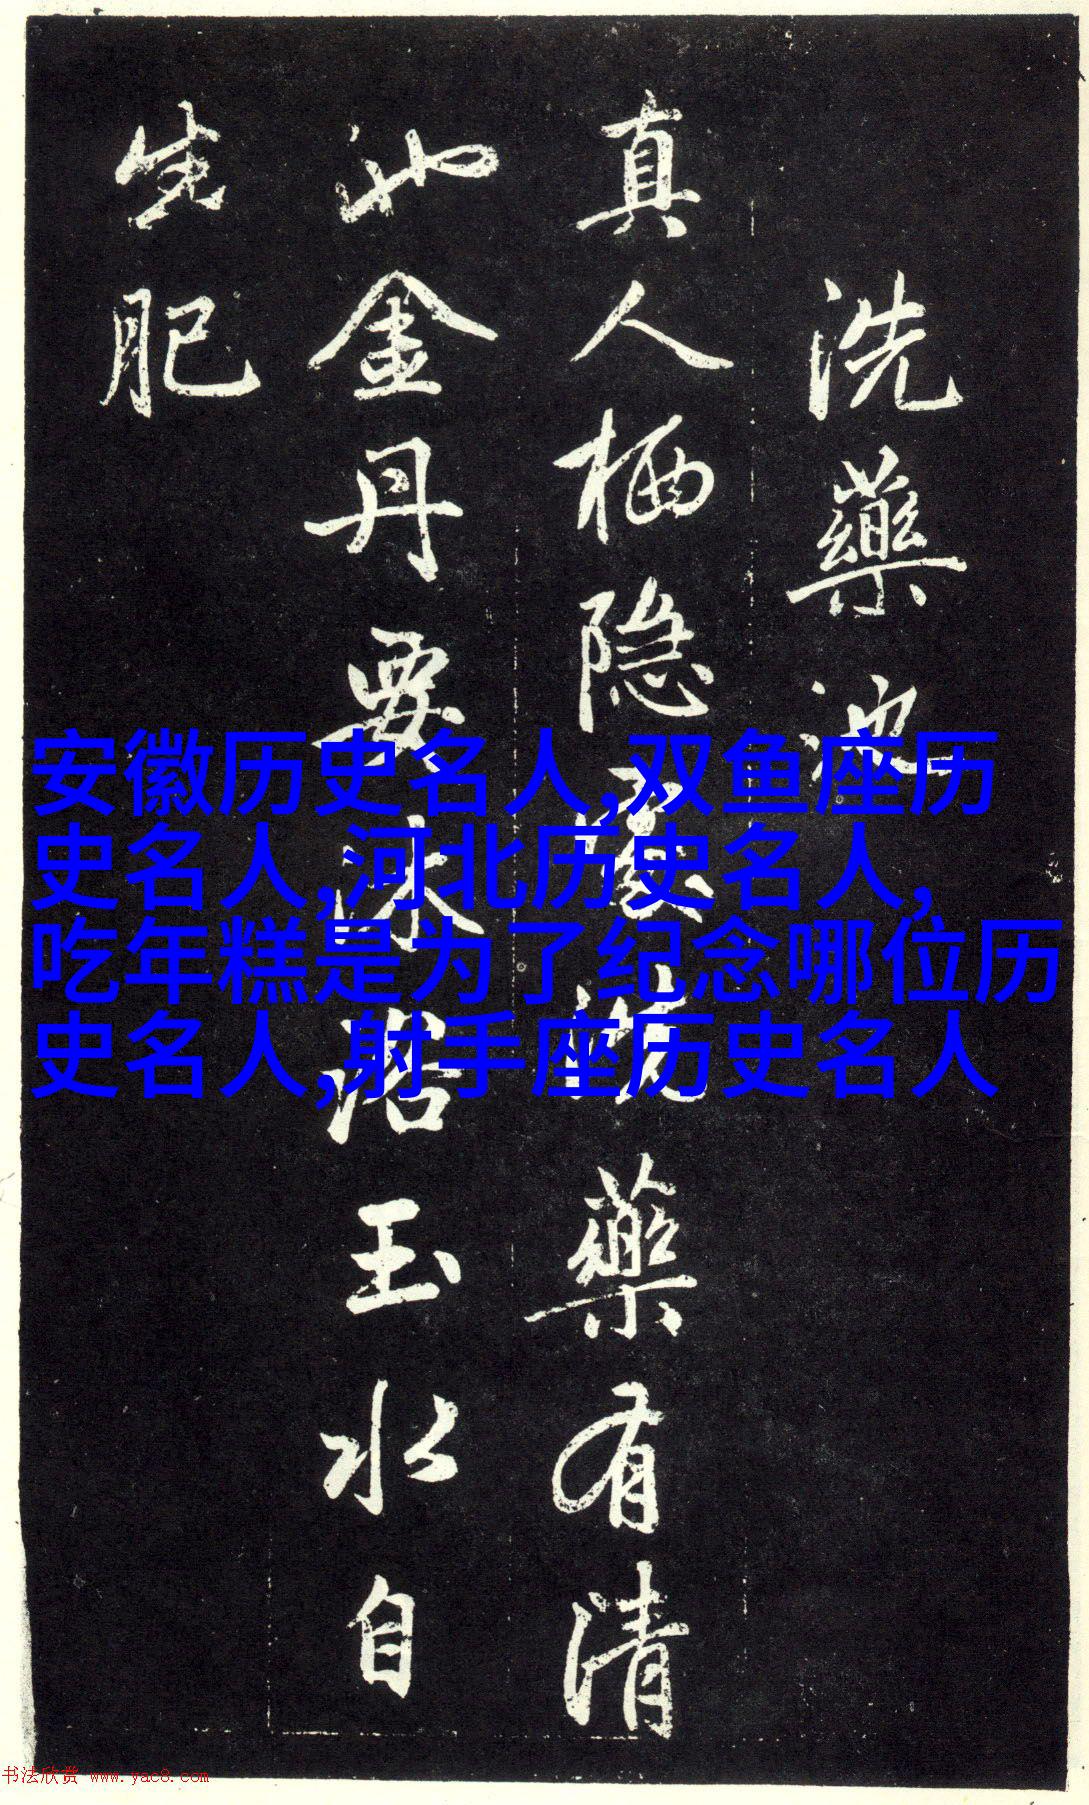 洗藥池
真人栖隐處洗藥有清
池金丹要沐浴玉水自
生肥
安徽历史名人,双鱼座历
史名人,河北历史名人,
吃年糕是为了纪念哪位历
史名人,射手座历史名人
书法欣赏 www.yac8.com